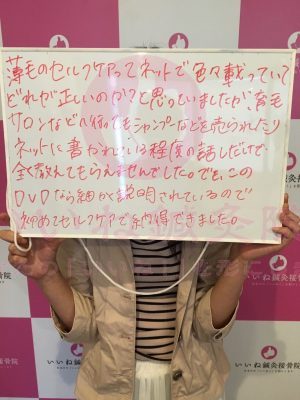 薄毛のセルフケアってネットで色々載っていて
どれが正しいのか?と思っていましたが、育毛
サロンなどに行ってもシャンプーなどを売られたり
ネットに書かれている程度の話しだけで
全く教えてもらえませんでした。でも、この
DVDなら細かく説明されているので
初めてセルフケアで納得できました。
いいね鍼灸接骨院
いいね鍼灸接骨院